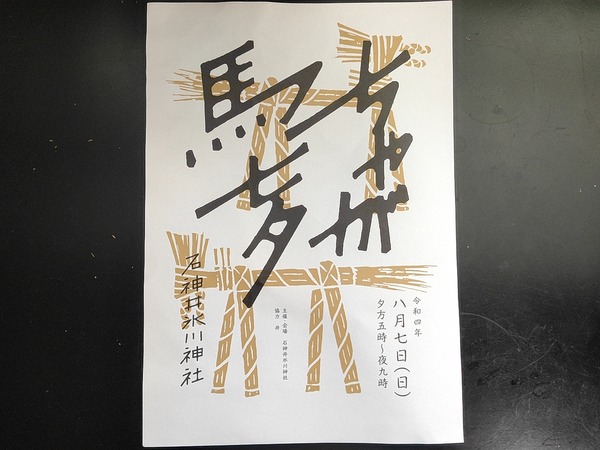 ちゃが
つ馬
七夕
令和四年
八月七日(日)
夕方五時〜夜九時
主催・会場 石神井氷川神社
協力 井
石神井氷川神社